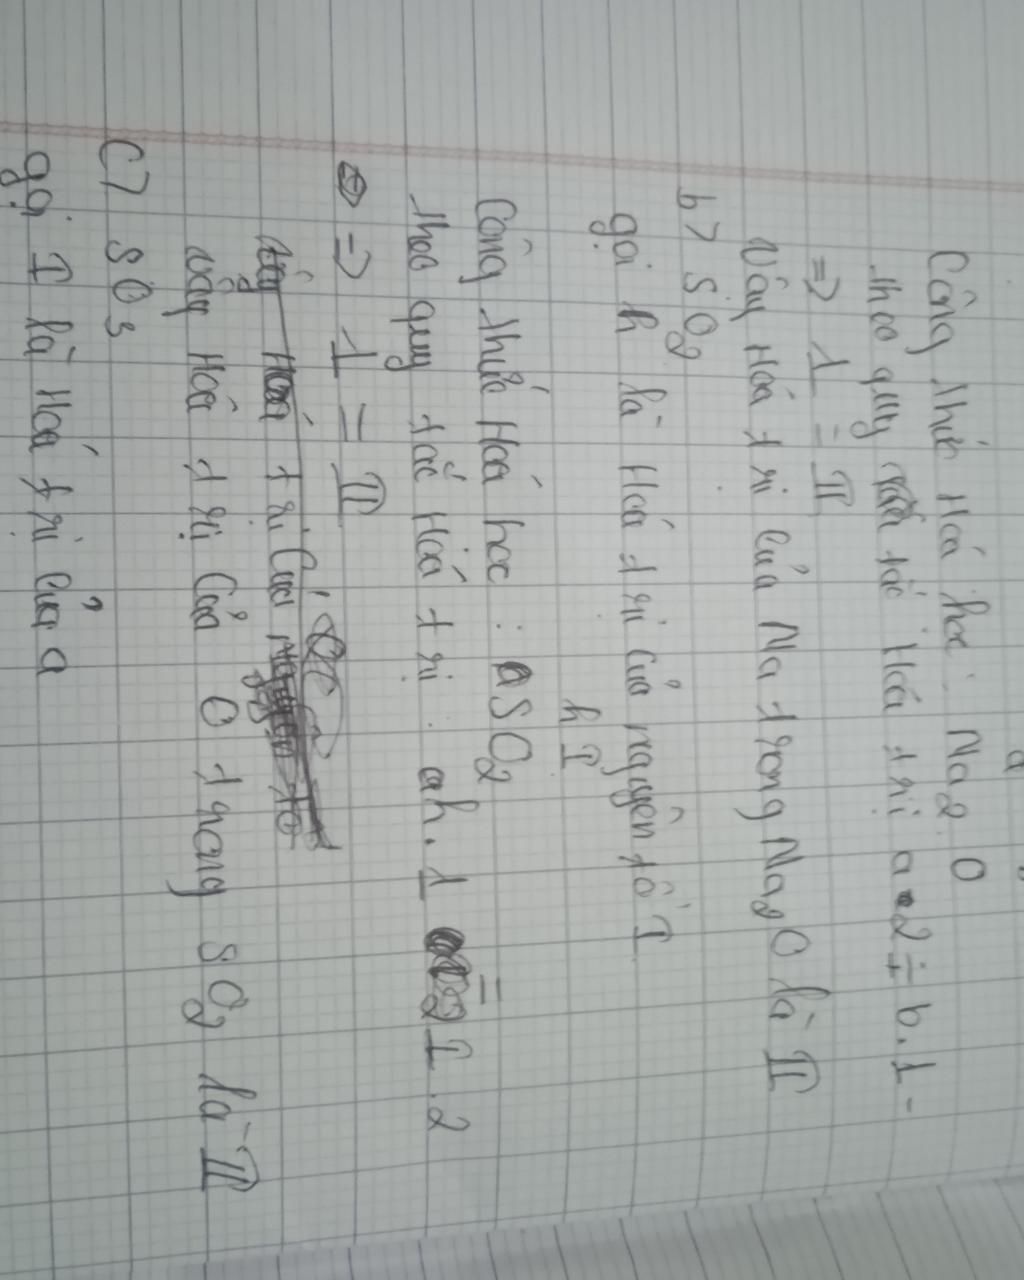 a
Công thức Hoá học: Na2 O
theo quy tắc Hoá trị a.2 = b.1
=> 1 = II
Vậy Hoá trị của Na trong Na2O là II
b> SO2
gọi h là Hoá trị của nguyên tố I
h I
Công thức Hoá học : aSO2
theo quy tắc Hoá trị : ah.1 = I.2
=> 1 = II
Vậy Hoá trị của O trong SO2 là II
C> SO3
gọi I là Hoá trị của a